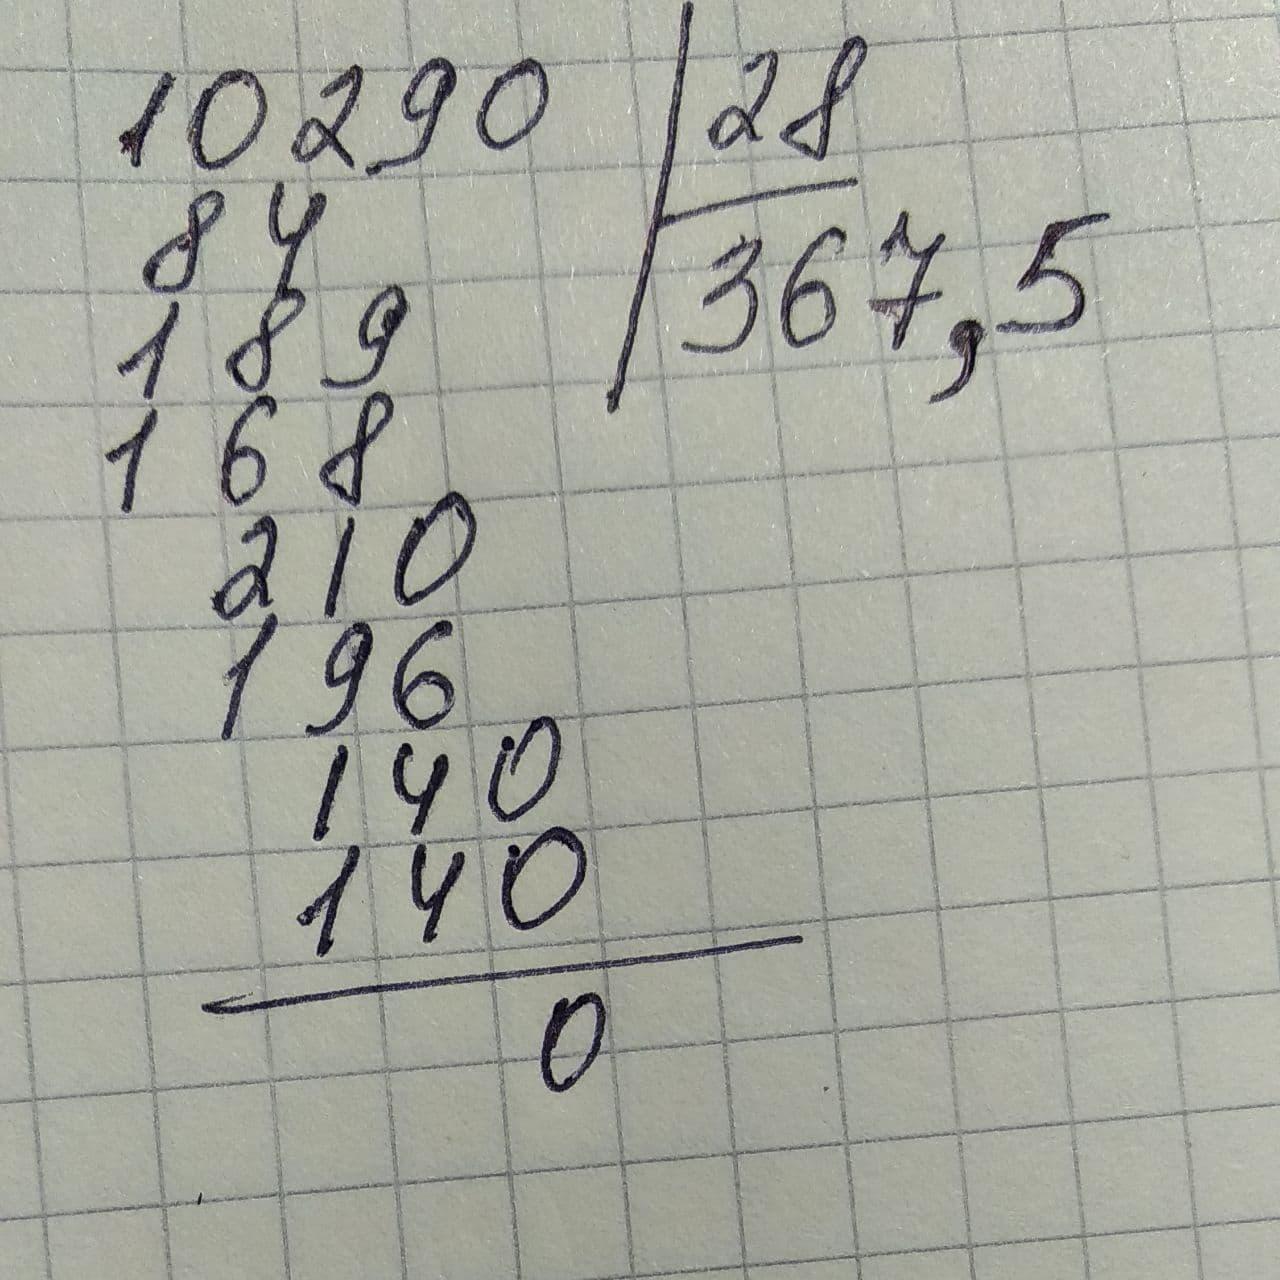 10290 28
84 367,5
189
168
210
196
140
140
0